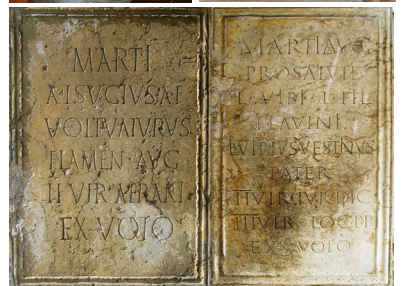 MARTI
A·ISVGIVS·A·F
VOLT·VATVRVS
FLAMEN·AVG
II VIR AERARI
EX VOTO
MARTI AVG
PRO SALVTE
L·VIBI·L·FIL
FLAVINI
L·VIBIVS VESTINVS
PATER
II VIR IVR DIC
III VIR LOC PP
EX VOTO